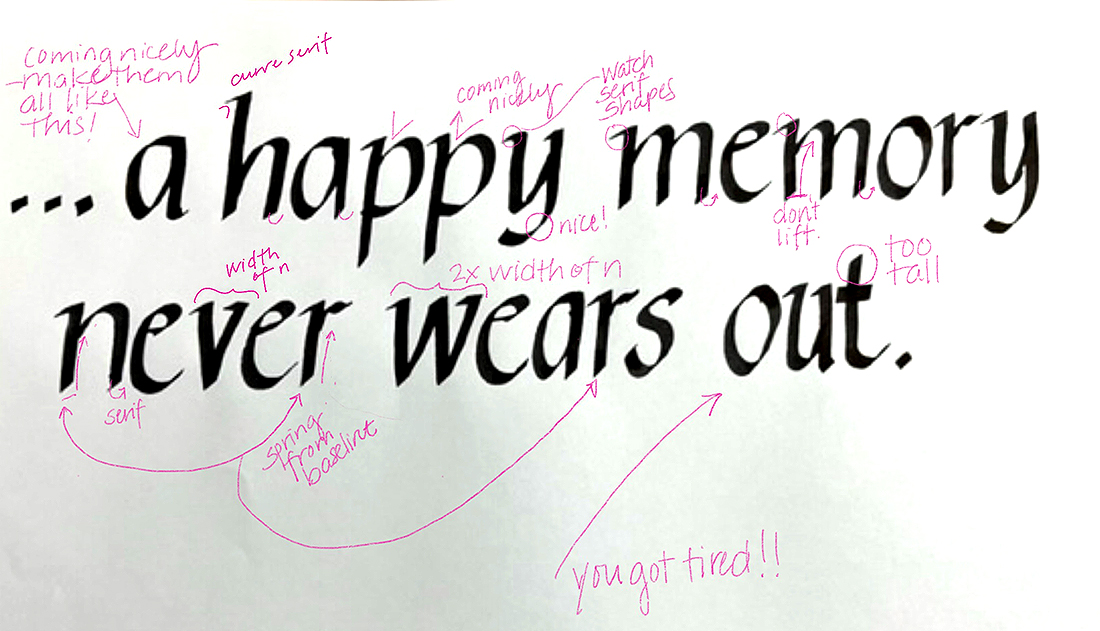 coming nicely
-make them
all like
this!
curve serif
coming
nicely
watch
serif
shapes
... a happy memory
nice!
don't
lift.
width
of n
2x width of n
too
tall
never wears out.
serif
spring
from
baseline
you got tired!!